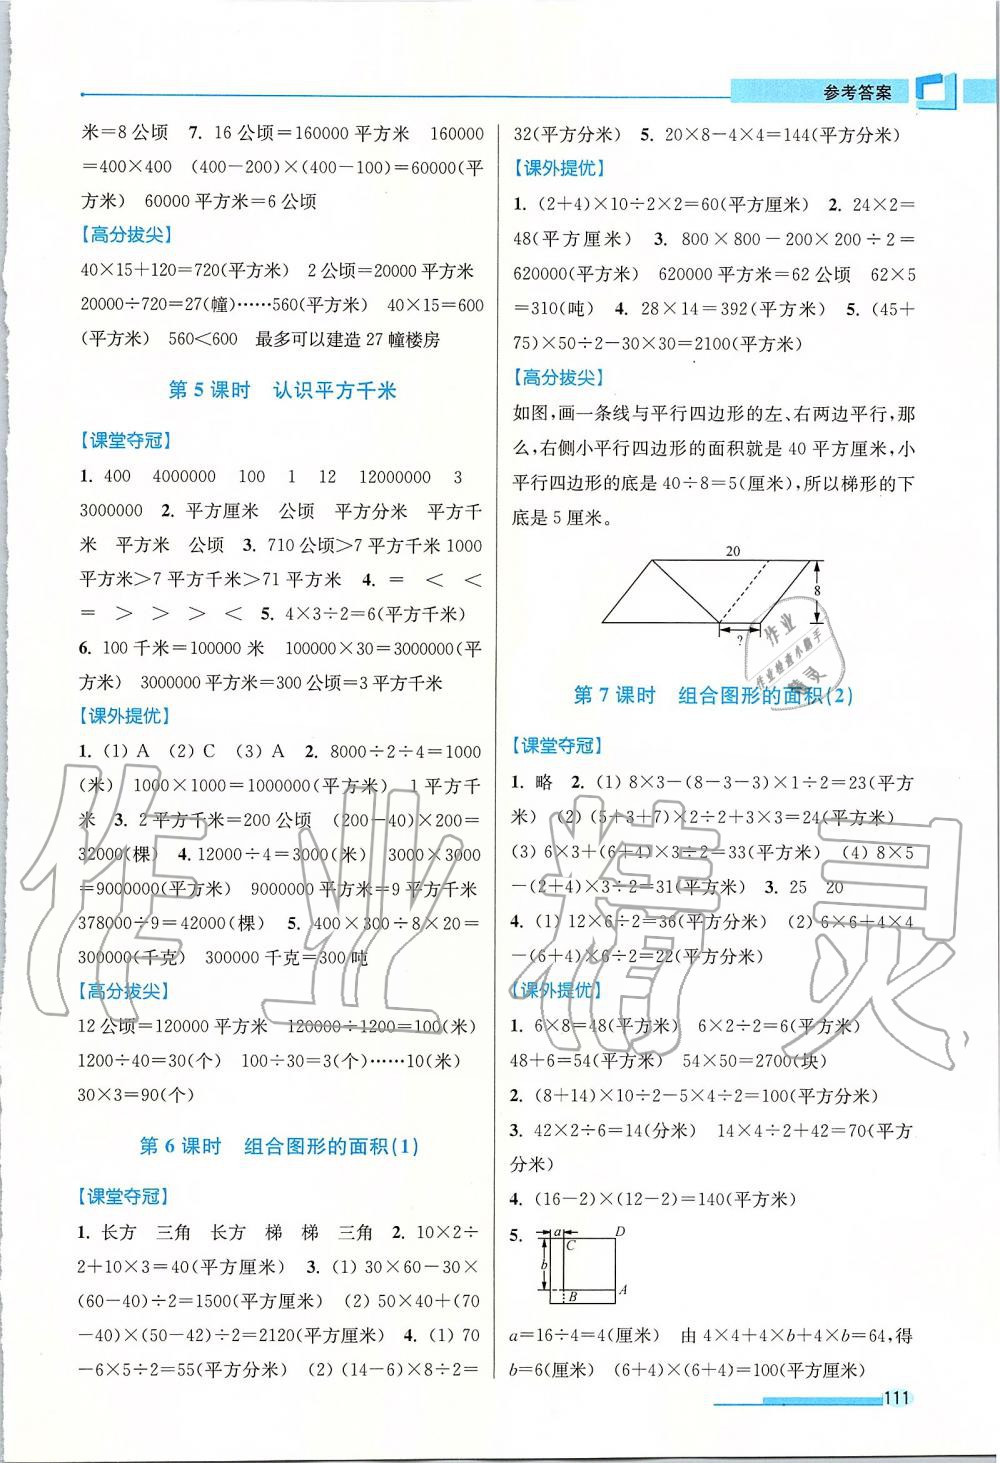 参考答案
米=8公顷 7. 16公顷=160000平方米 160000
=400×400 (400-200)×(400-100)=60000(平
方米) 60000平方米=6公顷
【高分拔尖】
40×15+120=720(平方米) 2公顷=20000平方米
20000÷720=27(幢)……560(平方米) 40×15=600
(平方米) 560<600 最多可以建造27幢楼房
第5课时 认识平方千米
【课堂夺冠】
1. 400 4000000 100 1 12 12000000 3
3000000 2. 平方厘米 公顷 平方分米 平方千
米 平方米 公顷 3. 710公顷>7平方千米1000
平方米>7平方千米>71平方米 4. = < <
= > > > < 5. 4×3÷2=6(平方千米)
6. 100千米=100000米 100000×30=3000000(平
方米) 3000000平方米=300公顷=3平方千米
【课外提优】
1. (1) A (2) C (3) A 2. 8000÷2÷4=1000
(米) 1000×1000=1000000(平方米) 1平方千
米 3. 2平方千米=200公顷 (200-40)×200=
32000(棵) 4. 12000÷4=3000(米) 3000×3000
=9000000(平方米) 9000000平方米=9平方千米
378000÷9=42000(棵) 5. 400×300÷8×20=
300000(千克) 300000千克=300吨
【高分拔尖】
12公顷=120000平方米 120000÷1200=100(米)
1200÷40=30(个) 100÷30=3(个)……10(米)
30×3=90(个)
第6课时 组合图形的面积(1)
【课堂夺冠】
1. 长方 三角 长方 梯 梯 三角 2. 10×2÷
2+10×3=40(平方厘米) 3. (1) 30×60-30×
(60-40)÷2=1500(平方厘米) (2) 50×40+(70
-40)×(50-42)÷2=2120(平方厘米) 4. (1) 70
-6×5÷2=55(平方分米) (2) (14-6)×8÷2=
32(平方分米) 5. 20×8-4×4=144(平方分米)
【课外提优】
1. (2+4)×10÷2×2=60(平方厘米) 2. 24×2=
48(平方厘米) 3. 800×800-200×200÷2=
620000(平方米) 620000平方米=62公顷 62×5
=310(吨) 4. 28×14=392(平方米) 5. (45+
75)×50÷2-30×30=2100(平方米)
【高分拔尖】
如图,画一条线与平行四边形的左、右两边平行,那
么,右侧小平行四边形的面积就是40平方厘米,小
平行四边形的底是40÷8=5(厘米),所以梯形的下
底是5厘米。
20
8
?
第7课时 组合图形的面积(2)
【课堂夺冠】
1. 略 2. (1) 8×3-(8-3-3)×1÷2=23(平方
米) (2) (5+3+7)×2÷2+3×3=24(平方米)
(3) 6×3+(6+4)×3÷2=33(平方米) (4) 8×5
-(2+4)×3÷2=31(平方米) 3. 25 20
4. (1) 12×6÷2=36(平方分米) (2) 6×6+4×4
-(6+4)×6÷2=22(平方分米)
【课外提优】
1. 6×8=48(平方米) 6×2÷2=6(平方米)
48+6=54(平方米) 54×50=2700(块)
2. (8+14)×10÷2-5×4÷2=100(平方分米)
3. 42×2÷6=14(分米) 14×4÷2+42=70(平方
分米)
4. (16-2)×(12-2)=140(平方米)
5.
a D
C
b
B A
a=16÷4=4(厘米) 由4×4+4×b+4×b=64,得
b=6(厘米) (6+4)×(6+4)=100(平方厘米)
111
作业精灵
作业
作业检查小助手
精灵